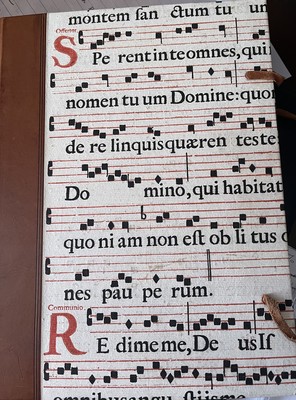 montem san ctum tu um
Offerto.
S Pe rent in te omnes, qui n
nomen tu um Domine: quon
de re linquis quæren testes
Do mino, qui habitat
quo ni am non est ob li tus o
nes pau pe rum.
Communio
R E dime me, De us Is
omnibus angu stijs me